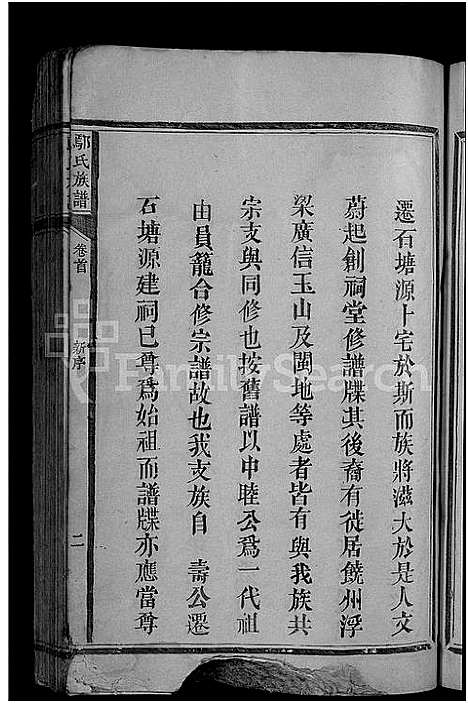 遷石塘源卜宅於斯而族將滋大於是人文
蔚起創祠堂修譜牒其後裔有徙居饒州浮
梁廣信玉山及閩地等處者皆有與我族共
宗支與同修也按舊譜以中睦公爲一代祖
由員籠合修宗譜故也我支族自 壽公遷
石塘源建祠巳尊爲始祖而譜牒亦應當尊
鄢氏族譜
卷首
新序
二
FamilySearch